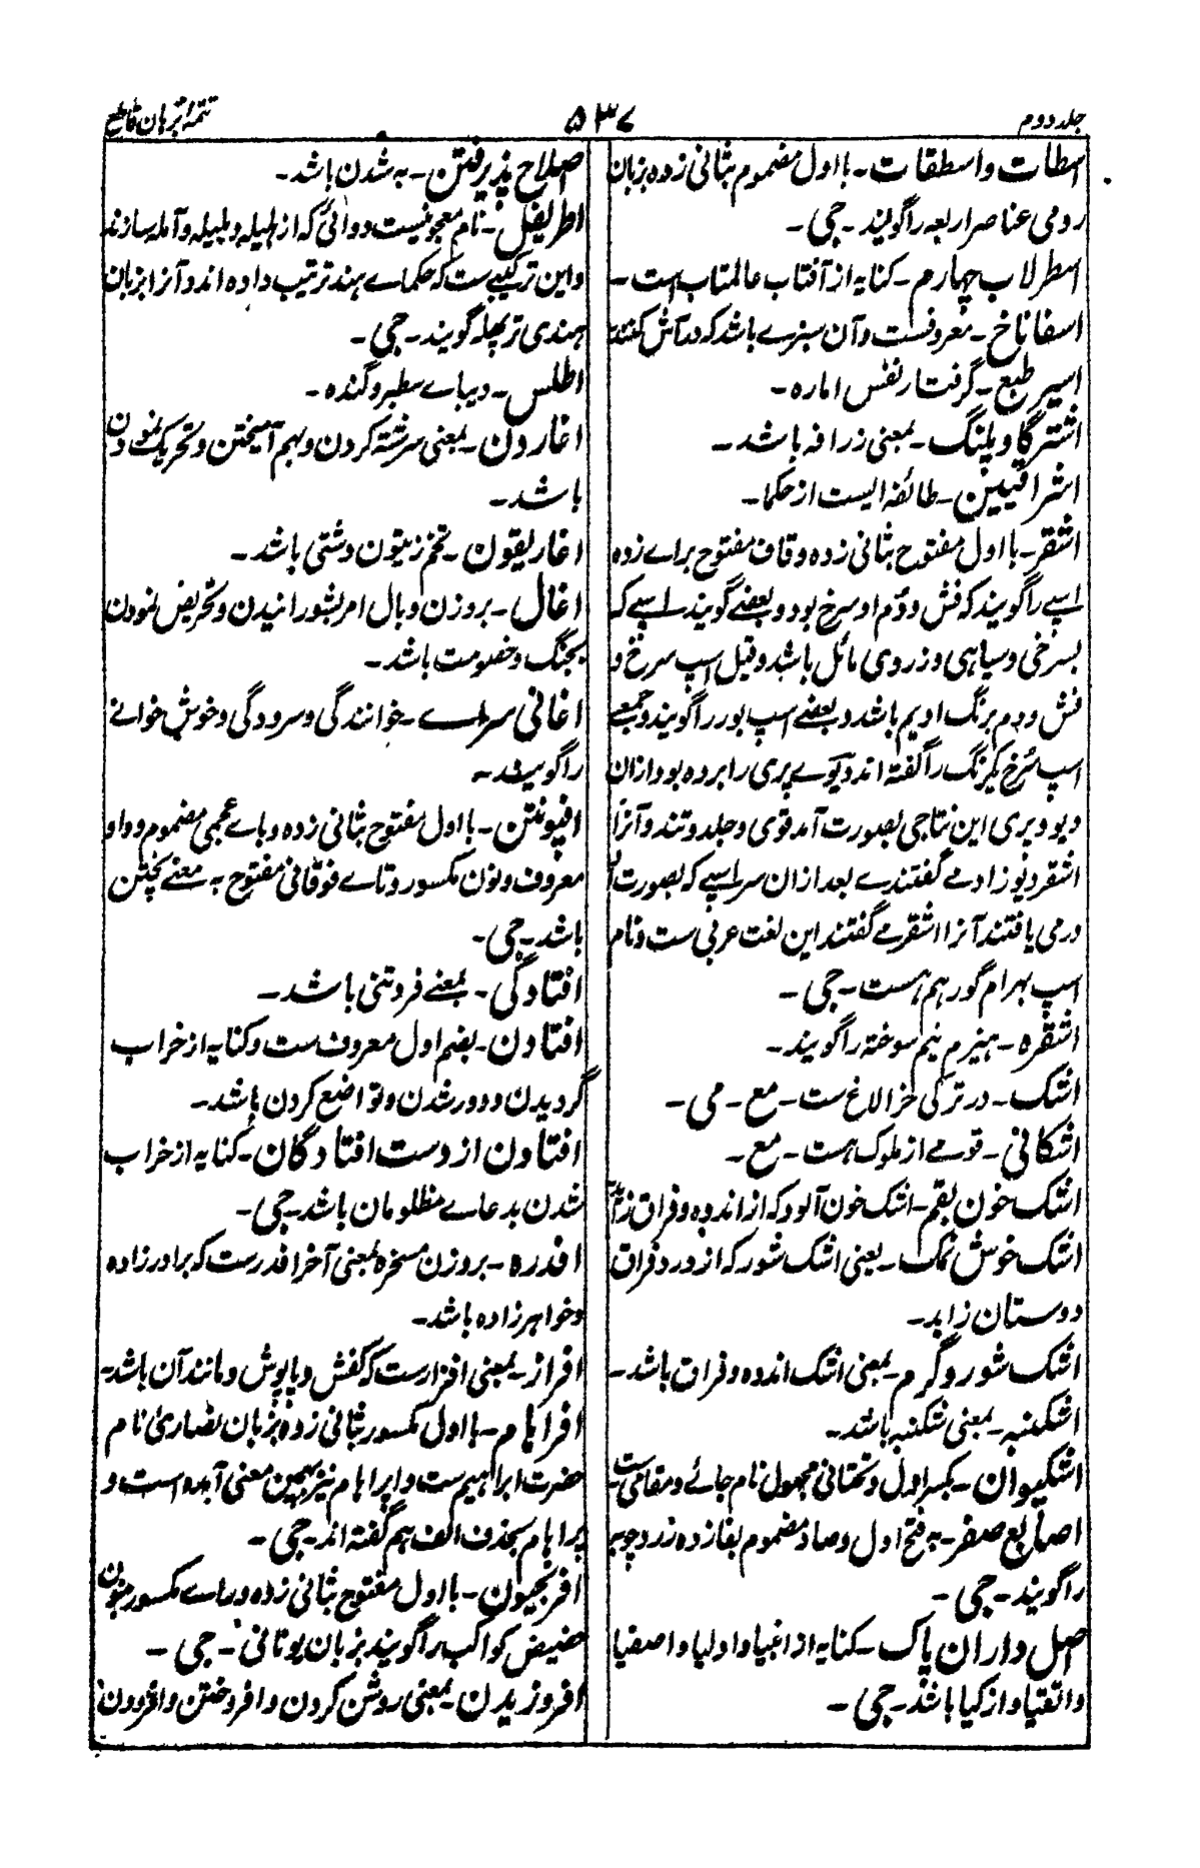 جلد دوم
۵۳۷
تتمه برهان قاطع
اسطات واسطقات - با اول مضموم بثانی زده بزبان
رومی عناصر اربعه را گویند - جی -
اسطرلاب چهارم - کنایه از آفتاب عالمتاب است -
اسفاناخ - معروفست وآن سبزے باشد که در آش کنند
اسیر طبع - گرفتار نفس اماره -
اشترگاوپلنگ - بمعنی زرافه باشد -
اشراقیین - طائفه ایست از حکما -
اشقر - با اول مفتوح بثانی زده وقاف مفتوح براے زده
اسپے را گویند که فش ودم او سرخ بود وبعضے گویند اسپے که
بسرخی وسیاهی وزردی مائل باشد وقیل اسپ سرخ و
فش ودم برنگ ادیم باشد وبعضے اسپ بور را گویند وجمعے
اسپ سرخ یکرنگ را گفته اند دیوے پری را برده بود ازان
دیو وپری این نتاجی بصورت آمد قوی وجلد وتند وآنرا
اشقر دیوزاد مے گفتندے بعد ازان هر اسپے که بصورت او
در می یافتند آنرا اشقر مے گفتند این لغت عربی ست ونام
اسپ بهرام گور هم هست - جی -
اشقره - هیزم نیم سوخته را گویند -
اشک - در ترکی خر الاغ ست - مع - می -
اشکانی - قومے از ملوک هست - مع -
اشک خون بقم - اشک خون آلود که از اندوه وفراق زاید
اشک خوش نمک - یعنی اشک شور که از درد فراق
دوستان زاید -
اشک شور وگرم - بمعنی اشک اندوه وفراق باشد -
اشکنبه - بمعنی شکنبه باشد -
اشکیوان - بکسر اول وتحتانی مجهول نام جائے ومقامی ست
اصابع صفر - به فتح اول وصاد مضموم بفا زده زرد چوبه
را گویند - جی -
اصل داران پاک - کنایه از انبیا واولیا واصفیا
واتقیا وازکیا باشد - جی -
اصلاح پذیرفتن - به شدن باشد -
اطریفل - نام معجونیست دوائی که از هلیله وبلیله وآمله سازند
واین ترکیبے ست که حکماے هند ترتیب داده اند وآنرا بزبان
هندی ترپهله گویند - جی -
اطلس - دیباے سطبر وگنده -
اغاردن - بمعنی سرشته کردن وبهم آمیختن وتحریک نمودن
باشد -
اغاریقون - تخم زیتون دشتی باشد -
اغال - بروزن وبال امر بشورانیدن وتحریض نمودن
بجنگ وخصومت باشد -
اغانی سراے - خوانندگی وسرودگی وخوش خوانے
را گویند -
افپونتن - با اول مفتوح بثانی زده وباے عجمی مضموم وواو
معروف ونون مکسور وتاے فوقانی مفتوح به معنے پختن
باشد - جی -
افتادگی - بمعنے فروتنی باشد -
افتادن - بضم اول معروف ست وکنایه از خراب
گردیدن ودور شدن وتواضع کردن باشد -
افتادن از دست افتادگان - کنایه از خراب
شدن بدعاے مظلومان باشد - جی -
افدره - بروزن مسخره بمعنی آخر افدرست که برادرزاده
وخواهرزاده باشد -
افراز - بمعنی افزارست که کفش وپاپوش ومانند آن باشد -
افراہام - با اول مکسور بثانی زده بزبان نصاری نام
حضرت ابراهیم ست وابراهام نیز بهمین معنی آمده است و
براهام بحذف الف هم گفته اند - جی -
افرنجیون - با اول مفتوح بثانی زده وراے مکسور بنون
حضیض کواکب را گویند بزبان یونانی - جی -
افروزیدن - بمعنی روشن کردن وافروختن وافزودن